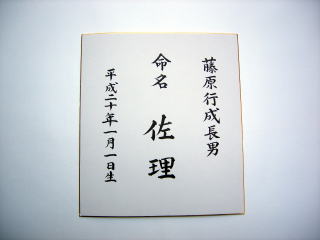 藤原行成長男
命名 佐理
平成二十年一月一日生